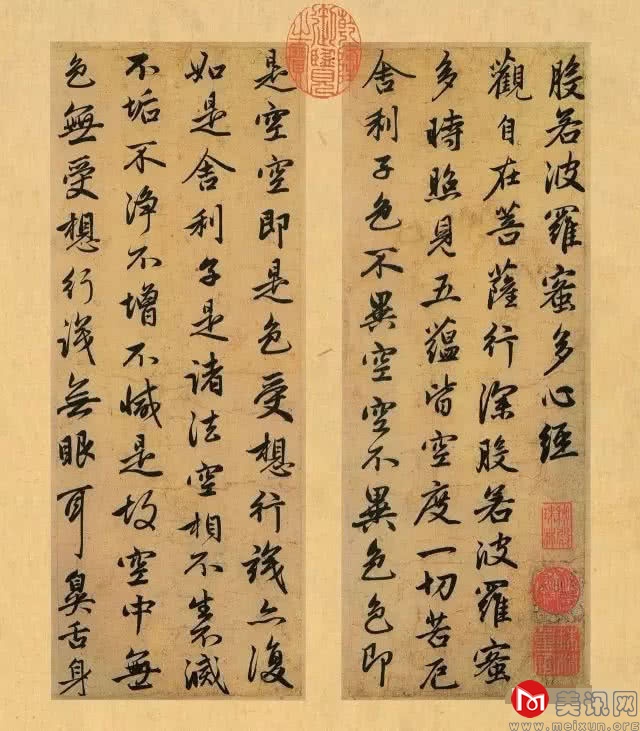 般若波羅蜜多心經
觀自在菩薩行深般若波羅蜜
多時照見五蘊皆空度一切苦厄
舍利子色不異空空不異色色即
是空空即是色受想行識亦復
如是舍利子是諸法空相不生不滅
不垢不淨不增不減是故空中無
色無受想行識無眼耳鼻舌身
美讯网
www.meixun.org